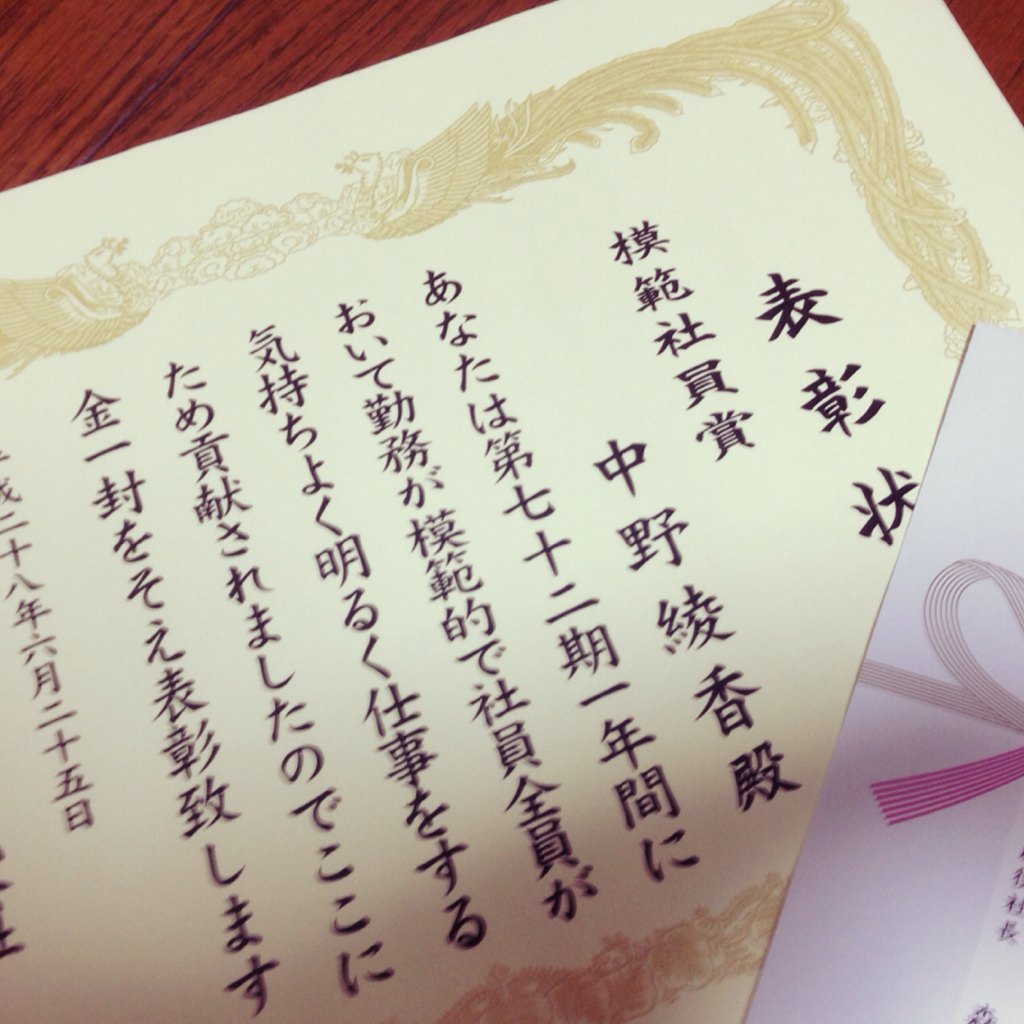 表彰状
模範社員賞
中野綾香殿
あなたは第七十二期一年間に
おいて勤務が模範的で社員全員が
気持ちよく明るく仕事をする
ため貢献されましたのでここに
金一封をそえ表彰致します
成二十八年六月二十五日
社長